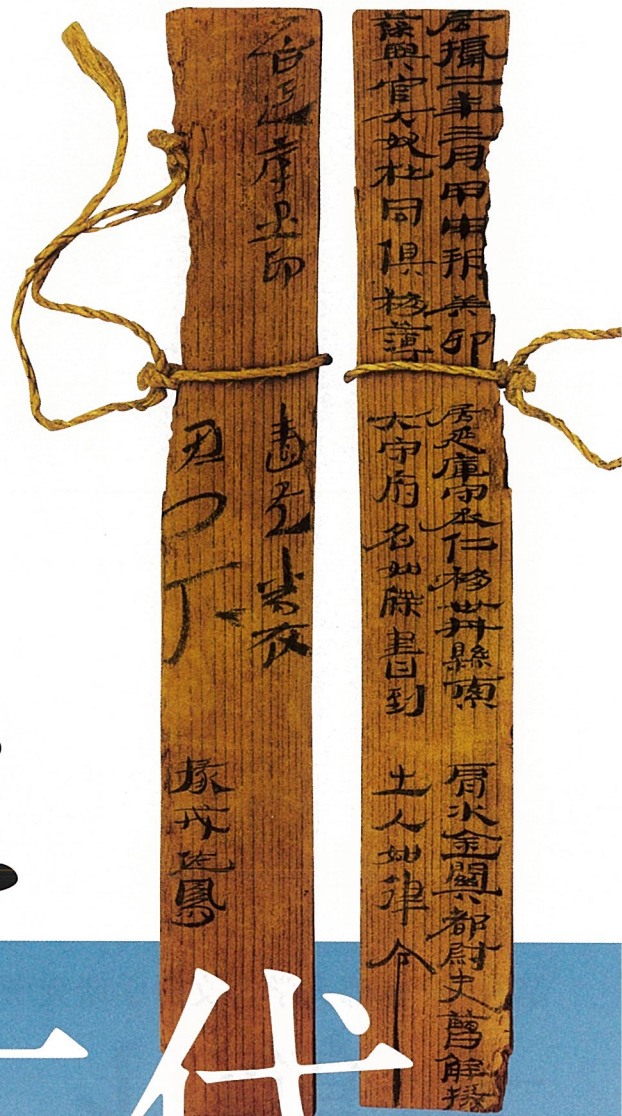 居攝二年三月甲申朔癸卯居延庫守丞仁移卅井縣索肩水金關都尉史曹解掾
葆與官大奴杜同俱移簿大守府名如牒書到出入如律令
居延庫丞印嗇夫當發
君門下掾戎佐鳳
代